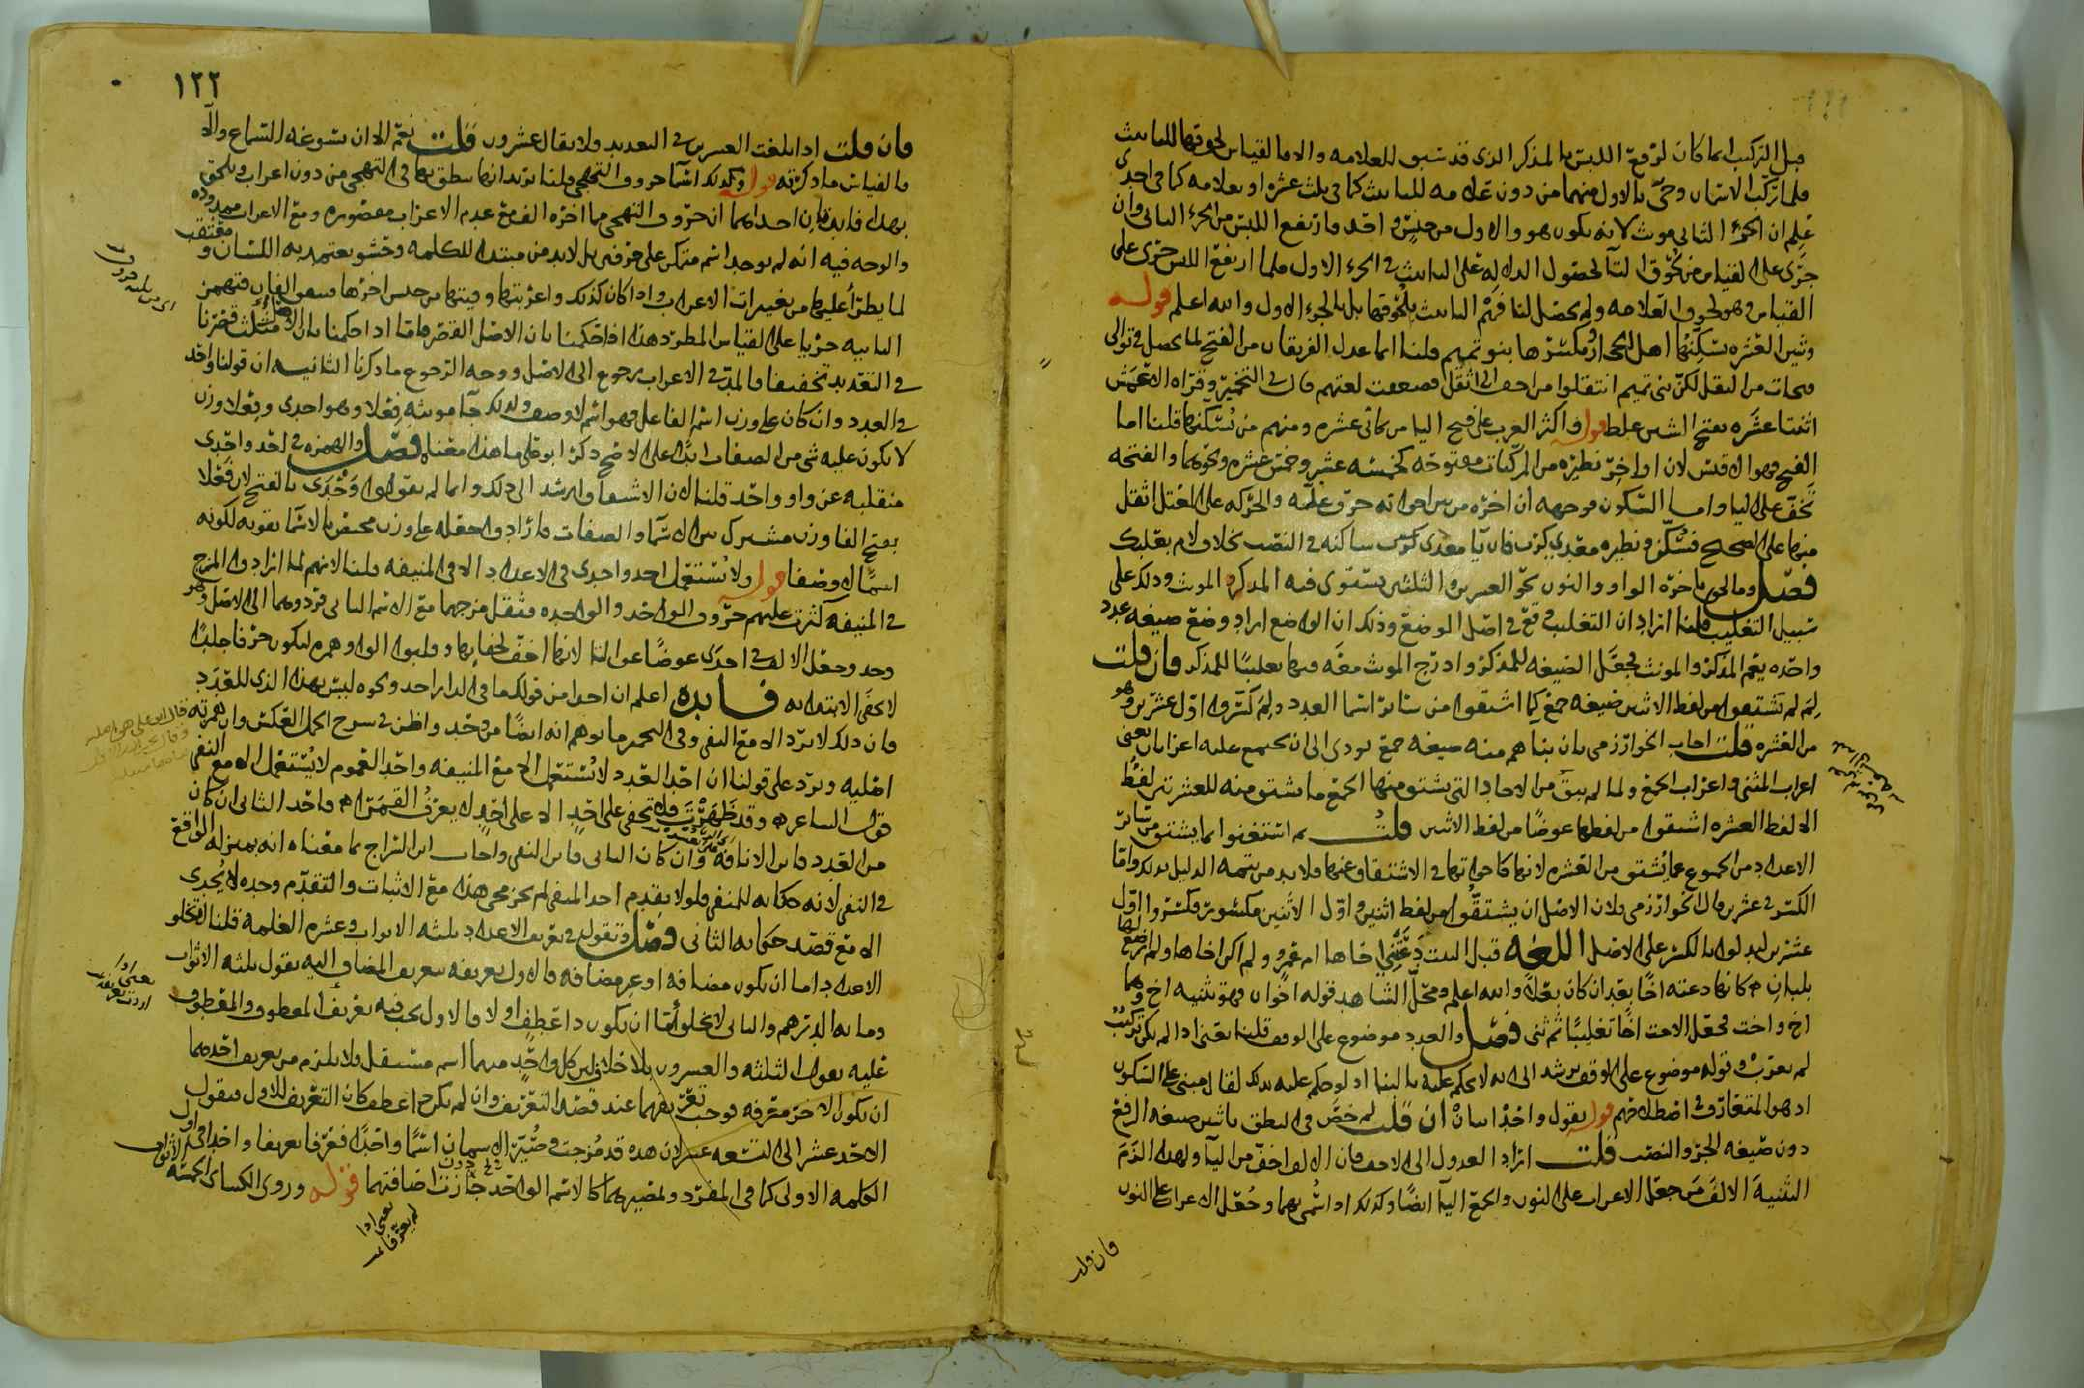 قبل التركيب انما كان لرفع اللبس بالمذكر الذى قد سبق للعلامه والا فالقياس لحوقها للتانيث
فلما تركب الاسمان وجى بالاول منهما من دون علامه للتانيث كما فى ثلث عشره او بعلامه كما فى احدى
علم ان الجزء الثانى مونث لانه يكون هو والاول من جنس واحد فارتفع اللبس من الجزء الثانى وان
جرى على القياس من لحوق التا لحصول الدلاله على التانيث فى الجزء الاول فلما ارتفع اللبس جرى على
القياس فى لحوق العلامه ولم يحصل لنا فهم التانيث بلحوقها بل بالجزء الاول والله اعلم قوله
وشين العشره يسكنها اهل الحجاز ويكسرها بنو تميم قلنا انما عدل الفريقان من الفتح لما يحصل فى توالى
فتحات من الثقل لكن بنى تميم انتقلوا من اخف الى اثقل فضعفت لغتهم قال فى التخمير وقراه الاعمش
اثنتا عشره بفتح الشين غلط قوله واكثر العرب على فتح اليا من ثمانى عشره ومنهم من يسكنها قلنا اما
الفتح فهو الاقيس لان اواخر نظيره من المركبات مفتوحه كخمسه عشر وخمس عشره ونحوهما والفتحه
تخف على اليا واما السكون فوجهه ان اخره من بين اخواته حرف عله والحركه على المعتل اثقل
منها على الصحيح فسكن ونظيره معدى كرب فان يا معدى كرب ساكنه فى النصب بخلاف لام بعلبك
فصل وما لحق باخره الواو والنون نحو العشرين والثلثين يستوى فيه المذكر والمونث وذلك على
سبيل التغليب قلنا اراد ان التغليب وقع فى اصل الوضع وذلك ان الواضع اراد وضع صيغه عدد
واحده يعم المذكر والمونث فجعل الصيغه للمذكر وادرج المونث معه فيها تغليبا للمذكر فان قلت
لم لم يشتقوا من لفظ الاثنين صيغه جمع كما اشتقوا من سائر اسما العدد ولم كسروا اول عشرين وهو
من العشره قلت اجاب الخوارزمى بان بناهم منه صيغه جمع يودى الى ان يجتمع عليه اعرابان يعنى
اعراب المثنى واعراب الجمع ولما لم يبق من الاحاد التى يشتق منها الجمع ما يشتق منه للعشرتين لفظ
الا لفظ العشره اشتقوا من لفظها عوضا من لفظ الاثنين قلت ثم استغنوا بما يشتق من سائر
الاعداد من الجموع عما يشتق من العشره لانها كاخواتها فى الاشتقاق عنها فلا بد من تتمه الدليل بذلك واما
الكسر فى عشرين قال الخوارزمى فلان الاصل ان يشتقوا من لفظ اثنين واول الاثنين مكسور فكسروا اول
عشرين ليدلوا بالكسر على الاصل اللغه قبل البيت دعتنى اخاها ام عمرو ولم اكن اخاها ولم ارضع لها
بلبان كانها دعته اخا بعد ان كان بعلا والله اعلم ومحل الشاهد قوله اخوان فهو تثنيه اخ وهما
اخ واخت فجعل الاخت اخا تغليبا ثم ثنى فصل والعدد موضوع على الوقف قلنا يعنى اذا لم يكن تركيب
لم يعرب وقوله موضوع على الوقف يرشد الى انه لا يحكم عليه بالبنا اذ لو حكم عليه بذلك لقال مبنى على السكون
اذ هو المتعارف فى اصطلاحهم قوله يقول واحد اثنان فان قلت لم خص فى النطق باثنين صيغه الرفع
دون صيغه الجر والنصب قلت اراد العدول الى الاخف فان الالف اخف من اليا ولهذا الزم
التثنيه الالف من جعل الاعراب على النون والجمع اليا ايضا وكذلك اذا سمى بهما وجعل الاعراب على النون
فان قلت
١٢٢
فان قلت اذا بلغت العشرين فى التعديد فلا يقال عشرون قلت نعم الا ان يسوغه السماع والا
فالقياس ما ذكرته قوله وكذلك اسما حروف التهجى قلنا يريد انها ينطق بها فى التهجى من دون اعراب ويلحق
بهذا فايدتان احداهما ان حروف التهجى ما اخره الف مع عدم الاعراب مقصوره ومع الاعراب ممدوده
والوجه فيه انه لم يوجد اسم متمكن على حرفين بل لا بد من مبتدا للكلمه وحشو يعتمد به اللسان ومعتقب
لما يطرا عليها من تغيرات الاعراب واذا كان كذلك واعربتها وفيتها من جنس اخرها فتجمع الفان فتهمز
الثانيه جريا على القياس المطرد هذا اذا حكمنا بان الاصل القصر فاما اذا حكمنا بان الاصل المد قصرنا
فى التعديد تخفيفا فالمد فى الاعراب رجوع الى الاصل ووجه الرجوع ما ذكرنا الثانيه ان قولنا واحد
فى العدد وان كان على وزن اسم الفاعل فهو اسم لا وصف ولذلك جا مونثه فعلا وهو احدى وفعلا وزن
لا يكون عليه شى من الصفات ابدا على الاصح ذكر ابو على ما هذا معناه فصل والهمزه فى احد واحدى
منقلبه عن واو واحد قلنا لان الاشتقاق ارشد الى ذلك وانما لم يقولوا وحدى بالفتح لان فعلا
بفتح الفا وزن مشترك بين الاسما والصفات فارادوا جعله على وزن مختص بالاسما تقويه لكونه
اسما لا وصفا قوله ولا يستعمل احد واحدى فى الاعداد الا فى المنيفه قلنا لانهم لما ارادوا المزج
فى المنيفه كثرت عليهم حروف الواحد والواحده فثقل مزجهما مع الاسم الثانى فردوهما الى الاصل وهو
وحد وجعل الالف فى احدى عوضا عن التا لانها اخف لخفائها وقلبوا الواو همزه ليكون حرفا جلدا
لا يخفى الابتدا به فايده اعلم ان احدا من قولك ما فى الدار احد ونحوه ليس بهذا الذى للعدد
فان ذلك لا يرد الا مع النفى وفى التخمير ما يوهم انه ايضا من وحد واظن فى شرح الجمل العكس وان همزته
اصليه ويرد على قولنا ان احد العدد لا يستعمل الا مع المنيفه واحد العموم لا يستعمل الا مع النفى
قول الشاعر وقد ظهرت فلا تخفى على احد الا على احد لا يعرف القمرا فاحد الثانى ان كان
من العدد فاين الانافه وان كان الثانى فاين النفى واجاب ابن السراج بما معناه انه بمنزله الواقع
فى النفى لانه حكايه للمنفى فلولا تقدم احد المنفى لم يجز مجى هذا مع الاثبات والتقدم وحده لا يجدى
الا مع قصد حكايه الثانى فصل وتقول فى تعريف الاعداد ثلثه الاثواب وعشره الغلمه قلنا لا تخلو
الاعداد اما ان تكون مضافه او غير مضافه فالاول تعريفه بتعريف المضاف اليه يقول ثلثه الاثواب
ومايه الدرهم والثانى لا يخلو اما ان يكون ذا عطف او لا فالاول يجب فيه تعريف المعطوف والمعطوف
عليه يقول الثلثه والعشرون بلا خلاف لان كل واحد منهما اسم مستقل ولا يلزم من تعريف احدهما
ان يكون الاخر معرفه فوجب تعريفهما عند قصد التعريف وان لم يكن ذا عطف كان التعريف للاول فيقول
الاحد عشر الى التسعه عشر لان هذه قد مزجت وصيرت الاسمان اسما واحدا فعرفا تعريفا واحدا فى اول
الكلمه الاولى كما فى المفرد ولمصيرهما كالاسم الواحد جازت اضافتهما قوله وروى الكسائى الخمسه الاثواب
يعنى اذا